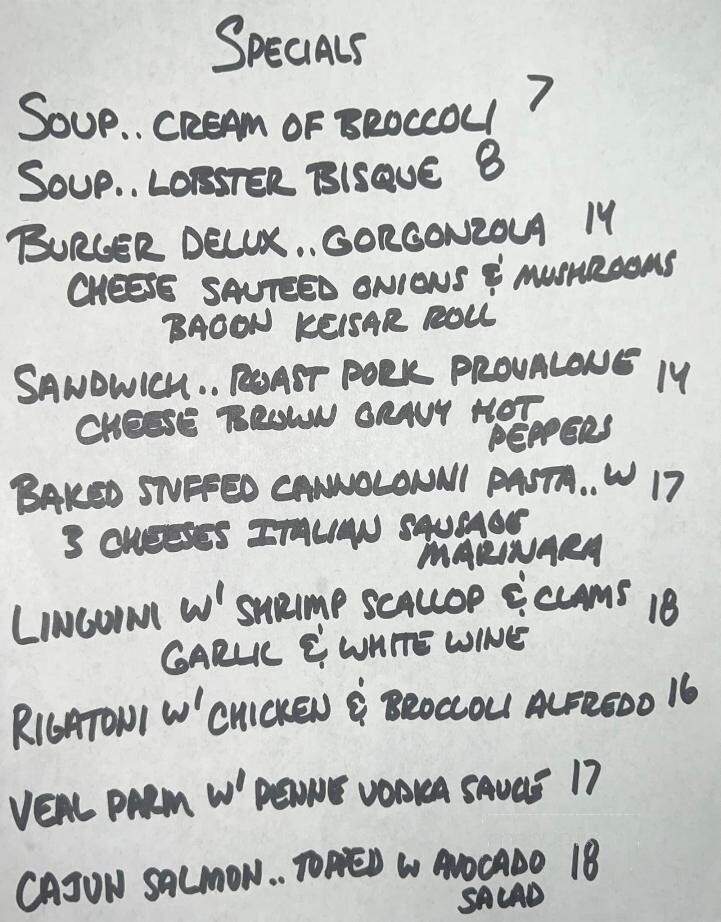 SPECIALS
SOUP.. CREAM OF BROCCOLI 7
SOUP.. LOBSTER BISQUE 8
BURGER DELUX.. GORGONZOLA 14
CHEESE SAUTEED ONIONS & MUSHROOMS
BACON KEISAR ROLL
SANDWICH.. ROAST PORK PROVALONE 14
CHEESE BROWN GRAVY HOT
PEPPERS
BAKED STUFFED CANNOLONNI PASTA.. W 17
3 CHEESES ITALIAN SAUSAGE
MARINARA
LINGUINI W' SHRIMP SCALLOP & CLAMS 18
GARLIC & WHITE WINE
RIGATONI W' CHICKEN & BROCCOLI ALFREDO 16
VEAL PARM W' PENNE VODKA SAUCE 17
CAJUN SALMON.. TOPPED W AVOCADO 18
SALAD